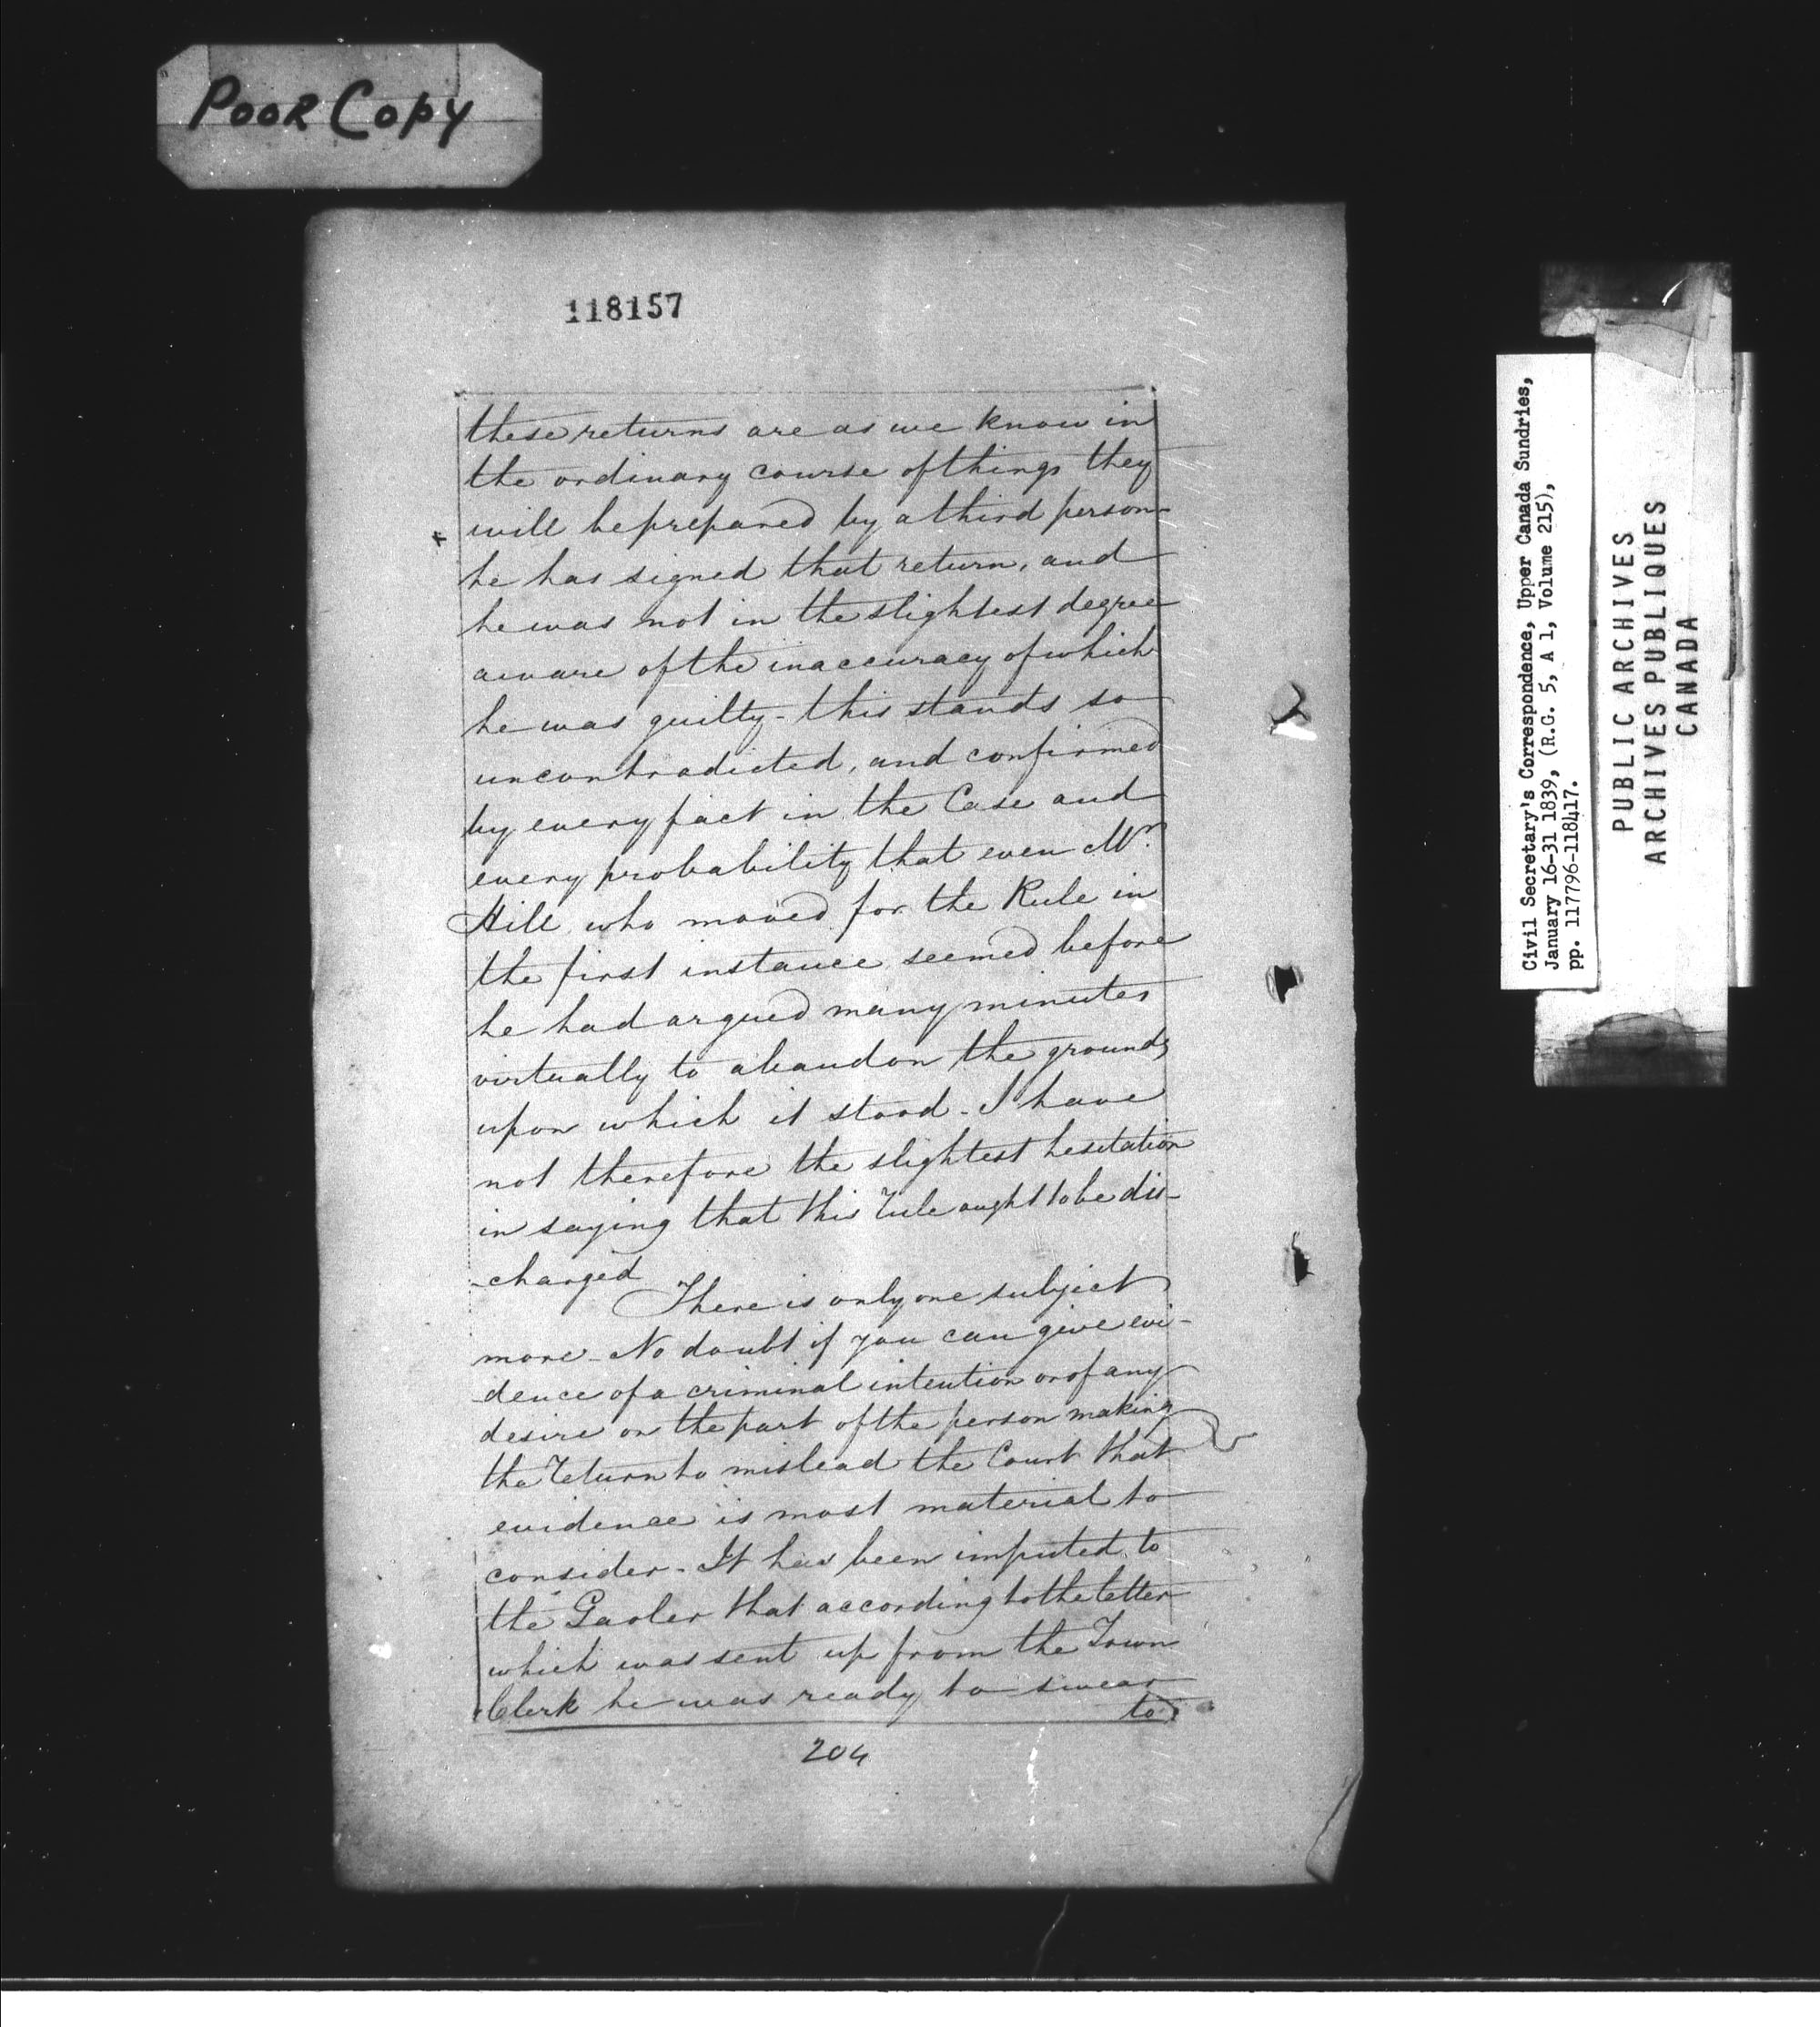 Poor Copy
118157
these returns are as we know in
the ordinary course of things they
will be prepared by a third person
he has signed that return, and
he was not in the slightest degree
aware of the inaccuracy of which
he was guilty - this stands so
uncontradicted, and confirmed
by every fact in the Case and
every probability that even Mr.
Hill who moved for the Rule in
the first instance seemed before
he had argued many minutes
virtually to abandon the grounds
upon which it stood - I have
not therefore the slightest hesitation
in saying that this rule ought to be dis-
-charged
There is only one subject
more - No doubt if you can give evi-
dence of a criminal intention or of any
desire on the part of the person making
the return to mislead the Court that
evidence is most material to
consider - It has been imputed to
the Gaoler that according to the letter
which was sent up from the Town
Clerk he was ready to swear
to
204
Civil Secretary's Correspondence, Upper Canada Sundries,
January 16-31 1839, (R.G. 5, A 1, Volume 215),
pp. 117796-118417.
PUBLIC ARCHIVES
ARCHIVES PUBLIQUES
CANADA